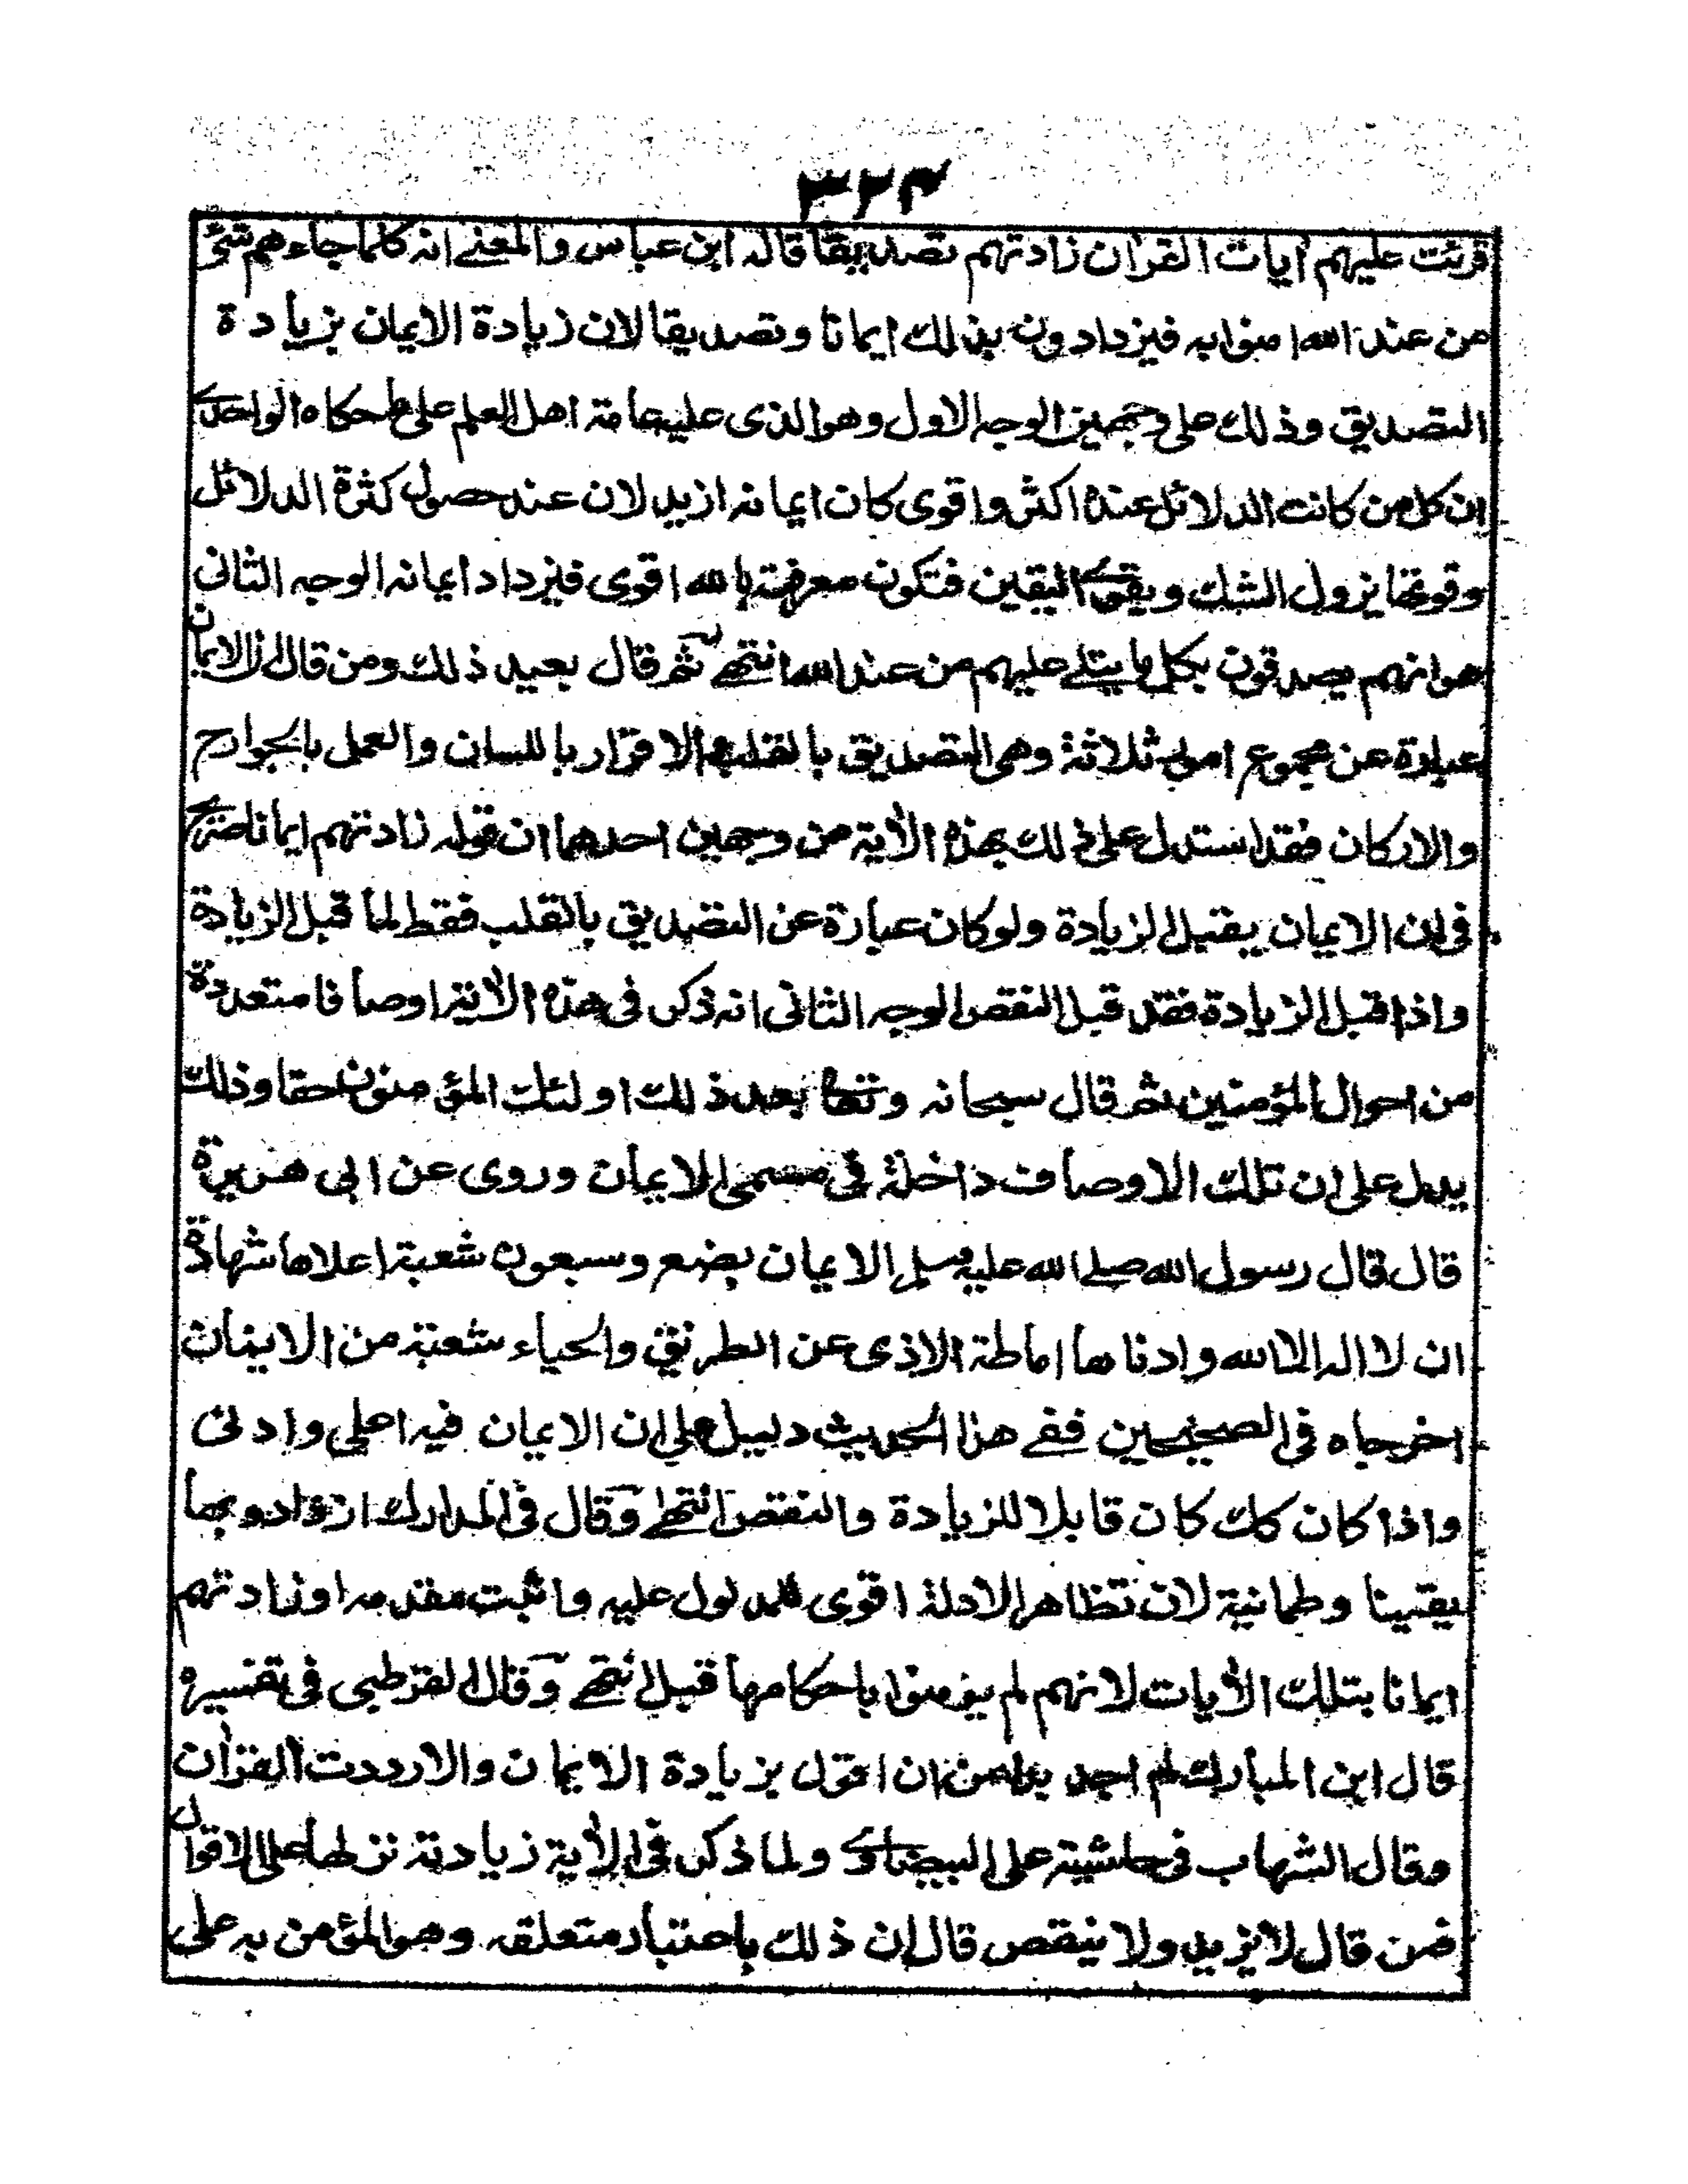 ٣٢٤
قرئت عليهم آيات القرآن زادتهم تصديقا قاله ابن عباس والمعنے انه كلما جاءهم شئ
من عند الله امنوا به فيزدادون بذلك ايمانا وتصديقا لان زيادة الايمان بزيادة
التصديق وذلك على وجهين الوجه الاول وهو الذى عليه عامة اهل العلم على ما حكاه الواحدے
ان كل من كانت الدلائل عنده اكثر واقوى كان ايمانه ازيد لان عند حصول كثرة الدلائل
وقوتها يزول الشك ويقوے اليقين فتكون معرفته بالله اقوى فيزداد ايمانه الوجه الثانى
هو انهم يصدقون بكل ما يتلے عليهم من عند الله انتهے ثم قال بعيد ذلك ومن قال ان الايمان
عبارة عن مجموع امور ثلاثة وهى التصديق بالقلب والاقرار باللسان والعمل بالجوارح
والاركان فقد استدل على ذلك بهذه الآية من وجهين احدهما ان قوله زادتهم ايمانا صريح
فى ان الايمان يقبل الزيادة ولو كان عبارة عن التصديق بالقلب فقط لما قبل الزيادة
واذا قبل الزيادة فقد قبل النقص الوجه الثانى انه ذكر فى هذه الآية اوصافا متعددة
من احوال المؤمنين ثم قال سبحانه وتعا بعد ذلك اولئك المؤمنون حقا وذلك
يدل على ان تلك الاوصاف داخلة فى مسمى الايمان وروى عن ابى هريرة
قال قال رسول الله صلے الله عليه وسلم الايمان بضع وسبعون شعبة اعلاها شهادة
ان لا اله الا الله وادناها اماطة الاذى عن الطريق والحياء شعبة من الايمان
اخرجاه فى الصحيحين ففے هذا الحديث دليل على ان الايمان فيه اعلى وادنى
واذا كان كك كان قابلا للزيادة والنقص انتهے وقال فى المدارك ازدادوا بها
يقينا وطمانية لان تظاهر الادلة اقوى للمدلول عليه واثبت مقدمه او زادتهم
ايمانا بتلك الآيات لانهم لم يؤمنوا باحكامها قبل انتهے وقال القرطبى فى تفسيره
قال ابن المبارك لم اجد بدا من ان اقول بزيادة الايمان والا رددت القرآن
وقال الشهاب فى حاشيته على البيضاوے ولما ذكر فى الآية زيادته نزلها على الاقوال
فمن قال لا يزيد ولا ينقص قال ان ذلك باعتبار متعلقه وهو المؤمن به على